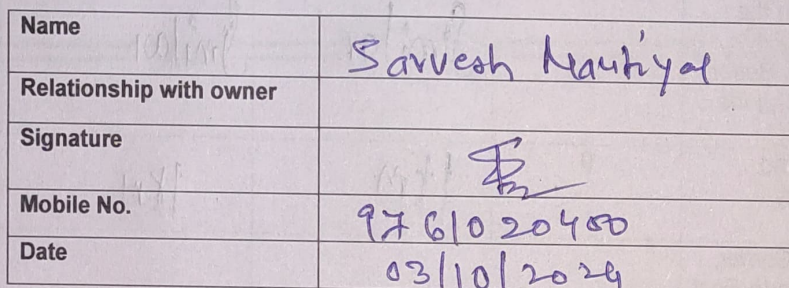 Name Sarvesh Nautiyal
Relationship with owner
Signature
Mobile No. 9761020400
Date 03/10/2024